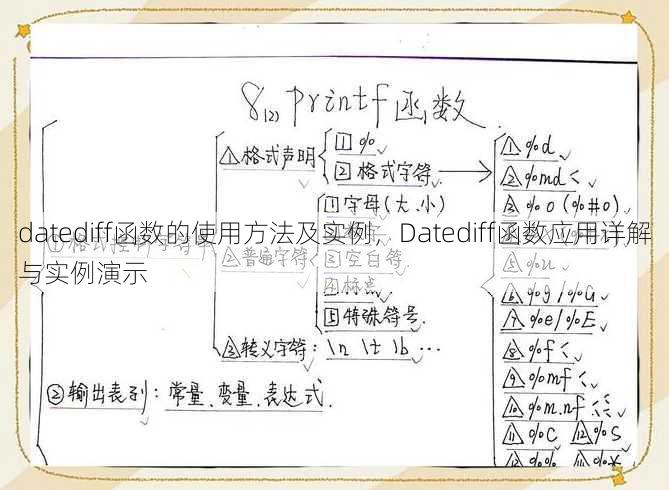 8.(2) printf函数
①格式控制字符串
△1格式声明
①%
②格式字符
△2普通字符
①字母(大、小)
③空白符
④标点
⑤特殊符号.
△3转义字符: \n \t \b …
②输出表列: 常量、变量、表达式.
△1%d
△2%md <
△3%o (%#o)
△5%u
△6%g/%G
△7%e/%E
△8%f <
△9%mf <
△10%m.nf
△11%c △12%s
%% %*
datediff函数的使用方法及实例，Datediff函数应用详解
与实例演示